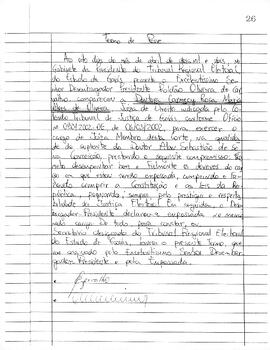 26
Termo de Posse
Ao oito dias do mês de abril de dois mil e dois, no
Gabinete da Presidência do Tribunal Regional Eleitoral
do Estado de Goiás, presente o Excelentíssimo Se-
nhor Desembargador Presidente Roldão Oliveira de Car-
valho, compareceu a Doutora Carmecy Rosa Maria
Alves de Oliveira, Juíza de Direito indicada pelo
Tribunal de Justiça de Goiás conforme Ofício
nº 0901202-DE, de 06/03/2002, para exercer o
cargo de Juíza Membro desta Corte, na qualida-
de de suplente do Doutor Abou Sebastião de Se-
na Conceição, prestando o seguinte compromisso: Pro-
meto desempenhar bem e fielmente os deveres do car-
go em que estou sendo empossada, cumprindo e fa-
zendo cumprir a Constituição e as leis da Re-
pública, pugnando, sempre, pelo prestígio e respeita-
bilidade da Justiça Eleitoral. Em seguida, o Desem-
bargador Presidente declarou-a empossada no mencio-
nado cargo. De tudo, para constar, eu,
Secretária designada do Tribunal Regional Eleitoral
do Estado de Goiás, lavrei o presente termo, que
vai assinado pelo Excelentíssimo Senhor Desembar-
gador Presidente e pela Empossada.